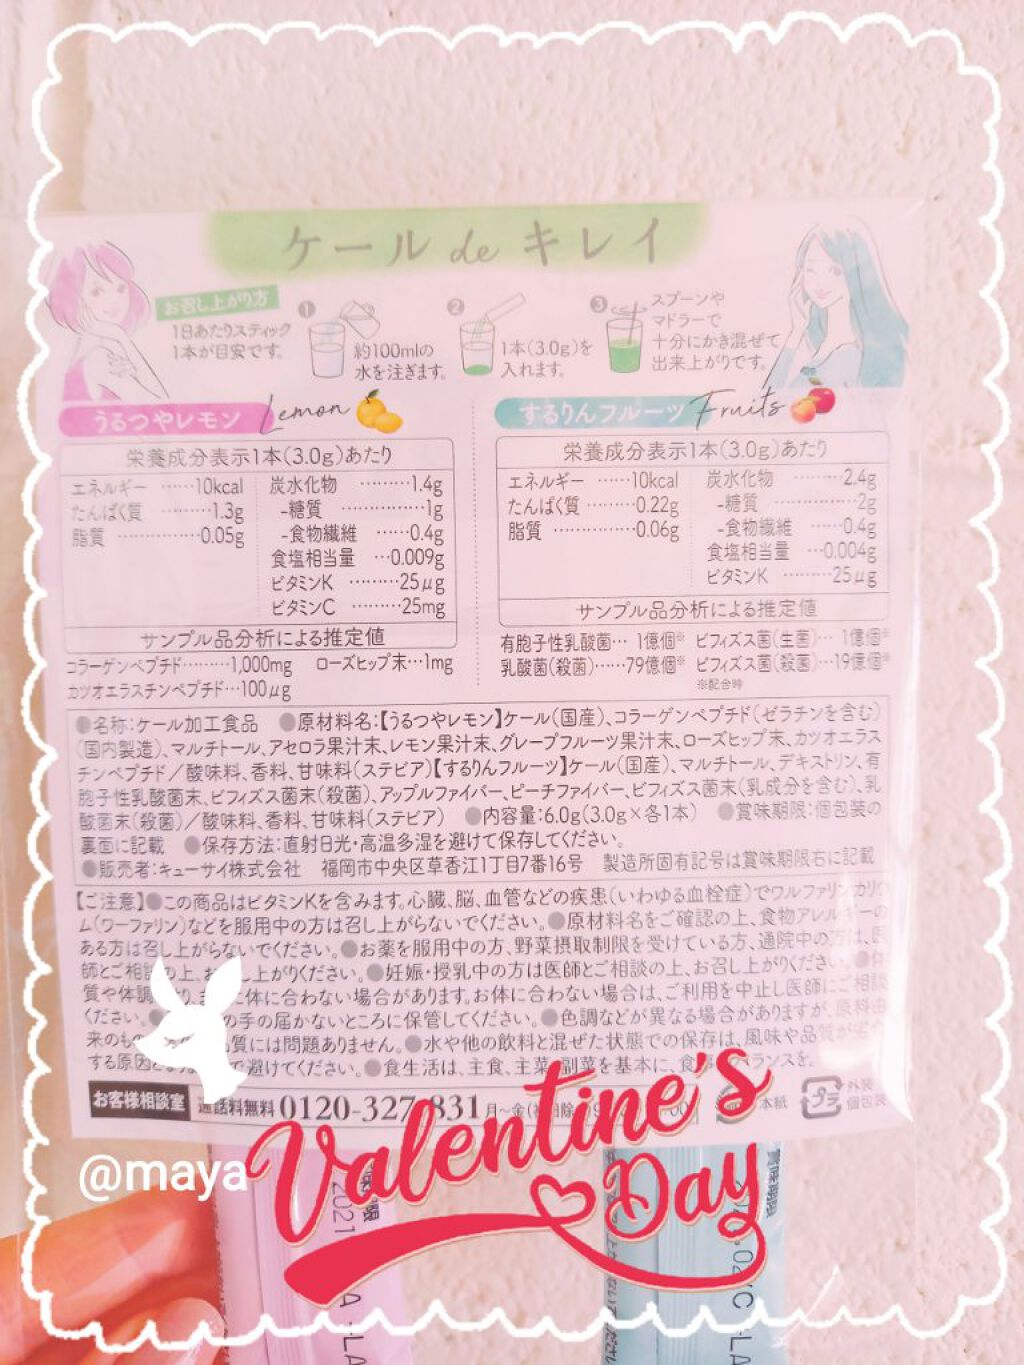 ケール de キレイ
お召し上がり方
1日あたりスティック
1本が目安です。
1
約100mlの
水を注ぎます。
2
1本(3.0g)を
入れます。
3
スプーンや
マドラーで
十分にかき混ぜて
出来上がりです。
うるつやレモン Lemon
栄養成分表示1本(3.0g)あたり
エネルギー ……10kcal
たんぱく質 ………1.3g
脂質 ……………0.05g
炭水化物 ………1.4g
-糖質 ……………1g
-食物繊維 ……0.4g
食塩相当量 …0.009g
ビタミンK ………25μg
ビタミンC ………25mg
サンプル品分析による推定値
コラーゲンペプチド………1,000mg ローズヒップ末…1mg
カツオエラスチンペプチド…100μg
するりんフルーツ Fruits
栄養成分表示1本(3.0g)あたり
エネルギー ……10kcal
たんぱく質 ……0.22g
脂質 ……………0.06g
炭水化物 ………2.4g
-糖質 ……………2g
-食物繊維 ……0.4g
食塩相当量 …0.004g
ビタミンK ………25μg
サンプル品分析による推定値
有胞子性乳酸菌… 1億個※ ビフィズス菌(生菌)… 1億個※
乳酸菌(殺菌)……79億個※ ビフィズス菌(殺菌)…19億個※
※配合時
●名称:ケール加工食品 ●原材料名:【うるつやレモン】ケール(国産)、コラーゲンペプチド(ゼラチンを含む)
(国内製造)、マルチトール、アセロラ果汁末、レモン果汁末、グレープフルーツ果汁末、ローズヒップ末、カツオエラス
チンペプチド/酸味料、香料、甘味料(ステビア)【するりんフルーツ】ケール(国産)、マルチトール、デキストリン、有
胞子性乳酸菌末、ビフィズス菌末(殺菌)、アップルファイバー、ピーチファイバー、ビフィズス菌末(乳成分を含む)、乳
酸菌末(殺菌)/酸味料、香料、甘味料(ステビア) ●内容量:6.0g(3.0g×各1本) ●賞味期限:個包装の
裏面に記載 ●保存方法:直射日光・高温多湿を避けて保存してください。
●販売者:キューサイ株式会社 福岡市中央区草香江1丁目7番16号 製造所固有記号は賞味期限右に記載
【ご注意】●この商品はビタミンKを含みます。心臓、脳、血管などの疾患(いわゆる血栓症)でワルファリンカリウ
ム(ワーファリン)などを服用中の方は召し上がらないでください。●原材料名をご確認の上、食物アレルギーの
ある方は召し上がらないでください。●お薬を服用中の方、野菜摂取制限を受けている方、通院中の方は、医
師とご相談の上、お召し上がりください。●妊娠・授乳中の方は医師とご相談の上、お召し上がりください。●体
質や体調 体に合わない場合があります。お体に合わない場合は、ご利用を中止し医師にご相談
ください。● の手の届かないところに保管してください。●色調などが異なる場合がありますが、原料由
来のもの 品質には問題ありません。●水や他の飲料と混ぜた状態での保存は、風味や品質が
する原因 で避けてください。●食生活は、主食、主菜、副菜を基本に、食事のバランスを。
お客様相談室 通話料無料 0120-327-831 月~金
本紙 プラ 外装 個包装
@maya
Valentine's
Day
2021